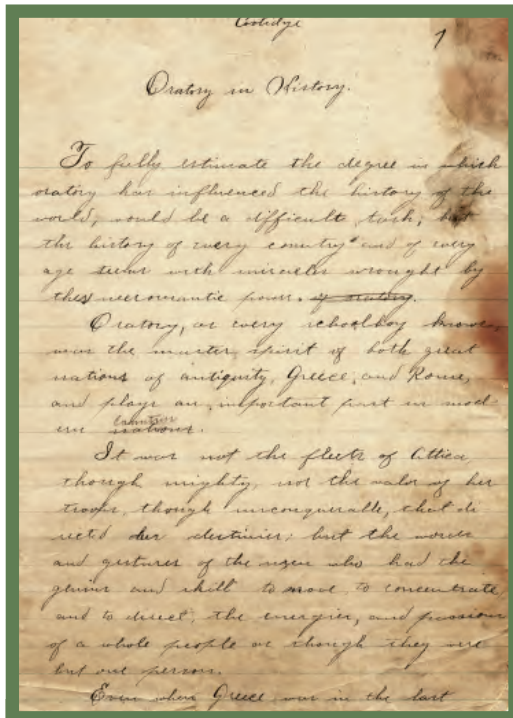 Coolidge
1
Oratory in History.
To fully estimate the degree in which
oratory has influenced the history of the
world, would be a difficult task; but
the history of every country and of every
age teems with miracles wrought by
this necromantic power. of oratory.
Oratory, as every schoolboy knows,
was the master spirit of both great
nations of antiquity, Greece, and Rome,
and plays an important part in mod
countries
ern nations.
It was not the fleets of Attica
though mighty, nor the valor of her
troops, though unconquerable, that di
rected her destinies; but the words
and gestures of the men who had the
genius and skill to move, to concentrate,
and to direct, the energies, and passions
of a whole people as though they were
but one person.
Even when Greece was in the last